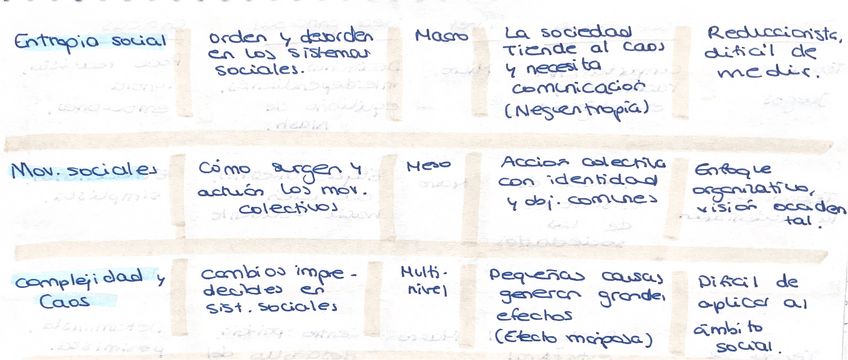 Entropia social
orden y desorden
en los sistemas
sociales.
Macro
La sociedad
tiende al caos
y necesita
comunicación
(Neguentropía)
Reduccionista,
dificil de
medir.
Mov. sociales
Cómo surgen y
actúan los mov.
colectivos
Meso
Acción colectiva
con identidad
y obj. comunes
Enfoque
organizativo,
visión occiden
tal.
Complejidad y
Caos
Cambios impre-
decibles en
sist. sociales
Multi-
nivel
Pequeñas causas
generan grandes
efectos
(Efecto mariposa)
Dificil de
aplicar al
ámbito
social.